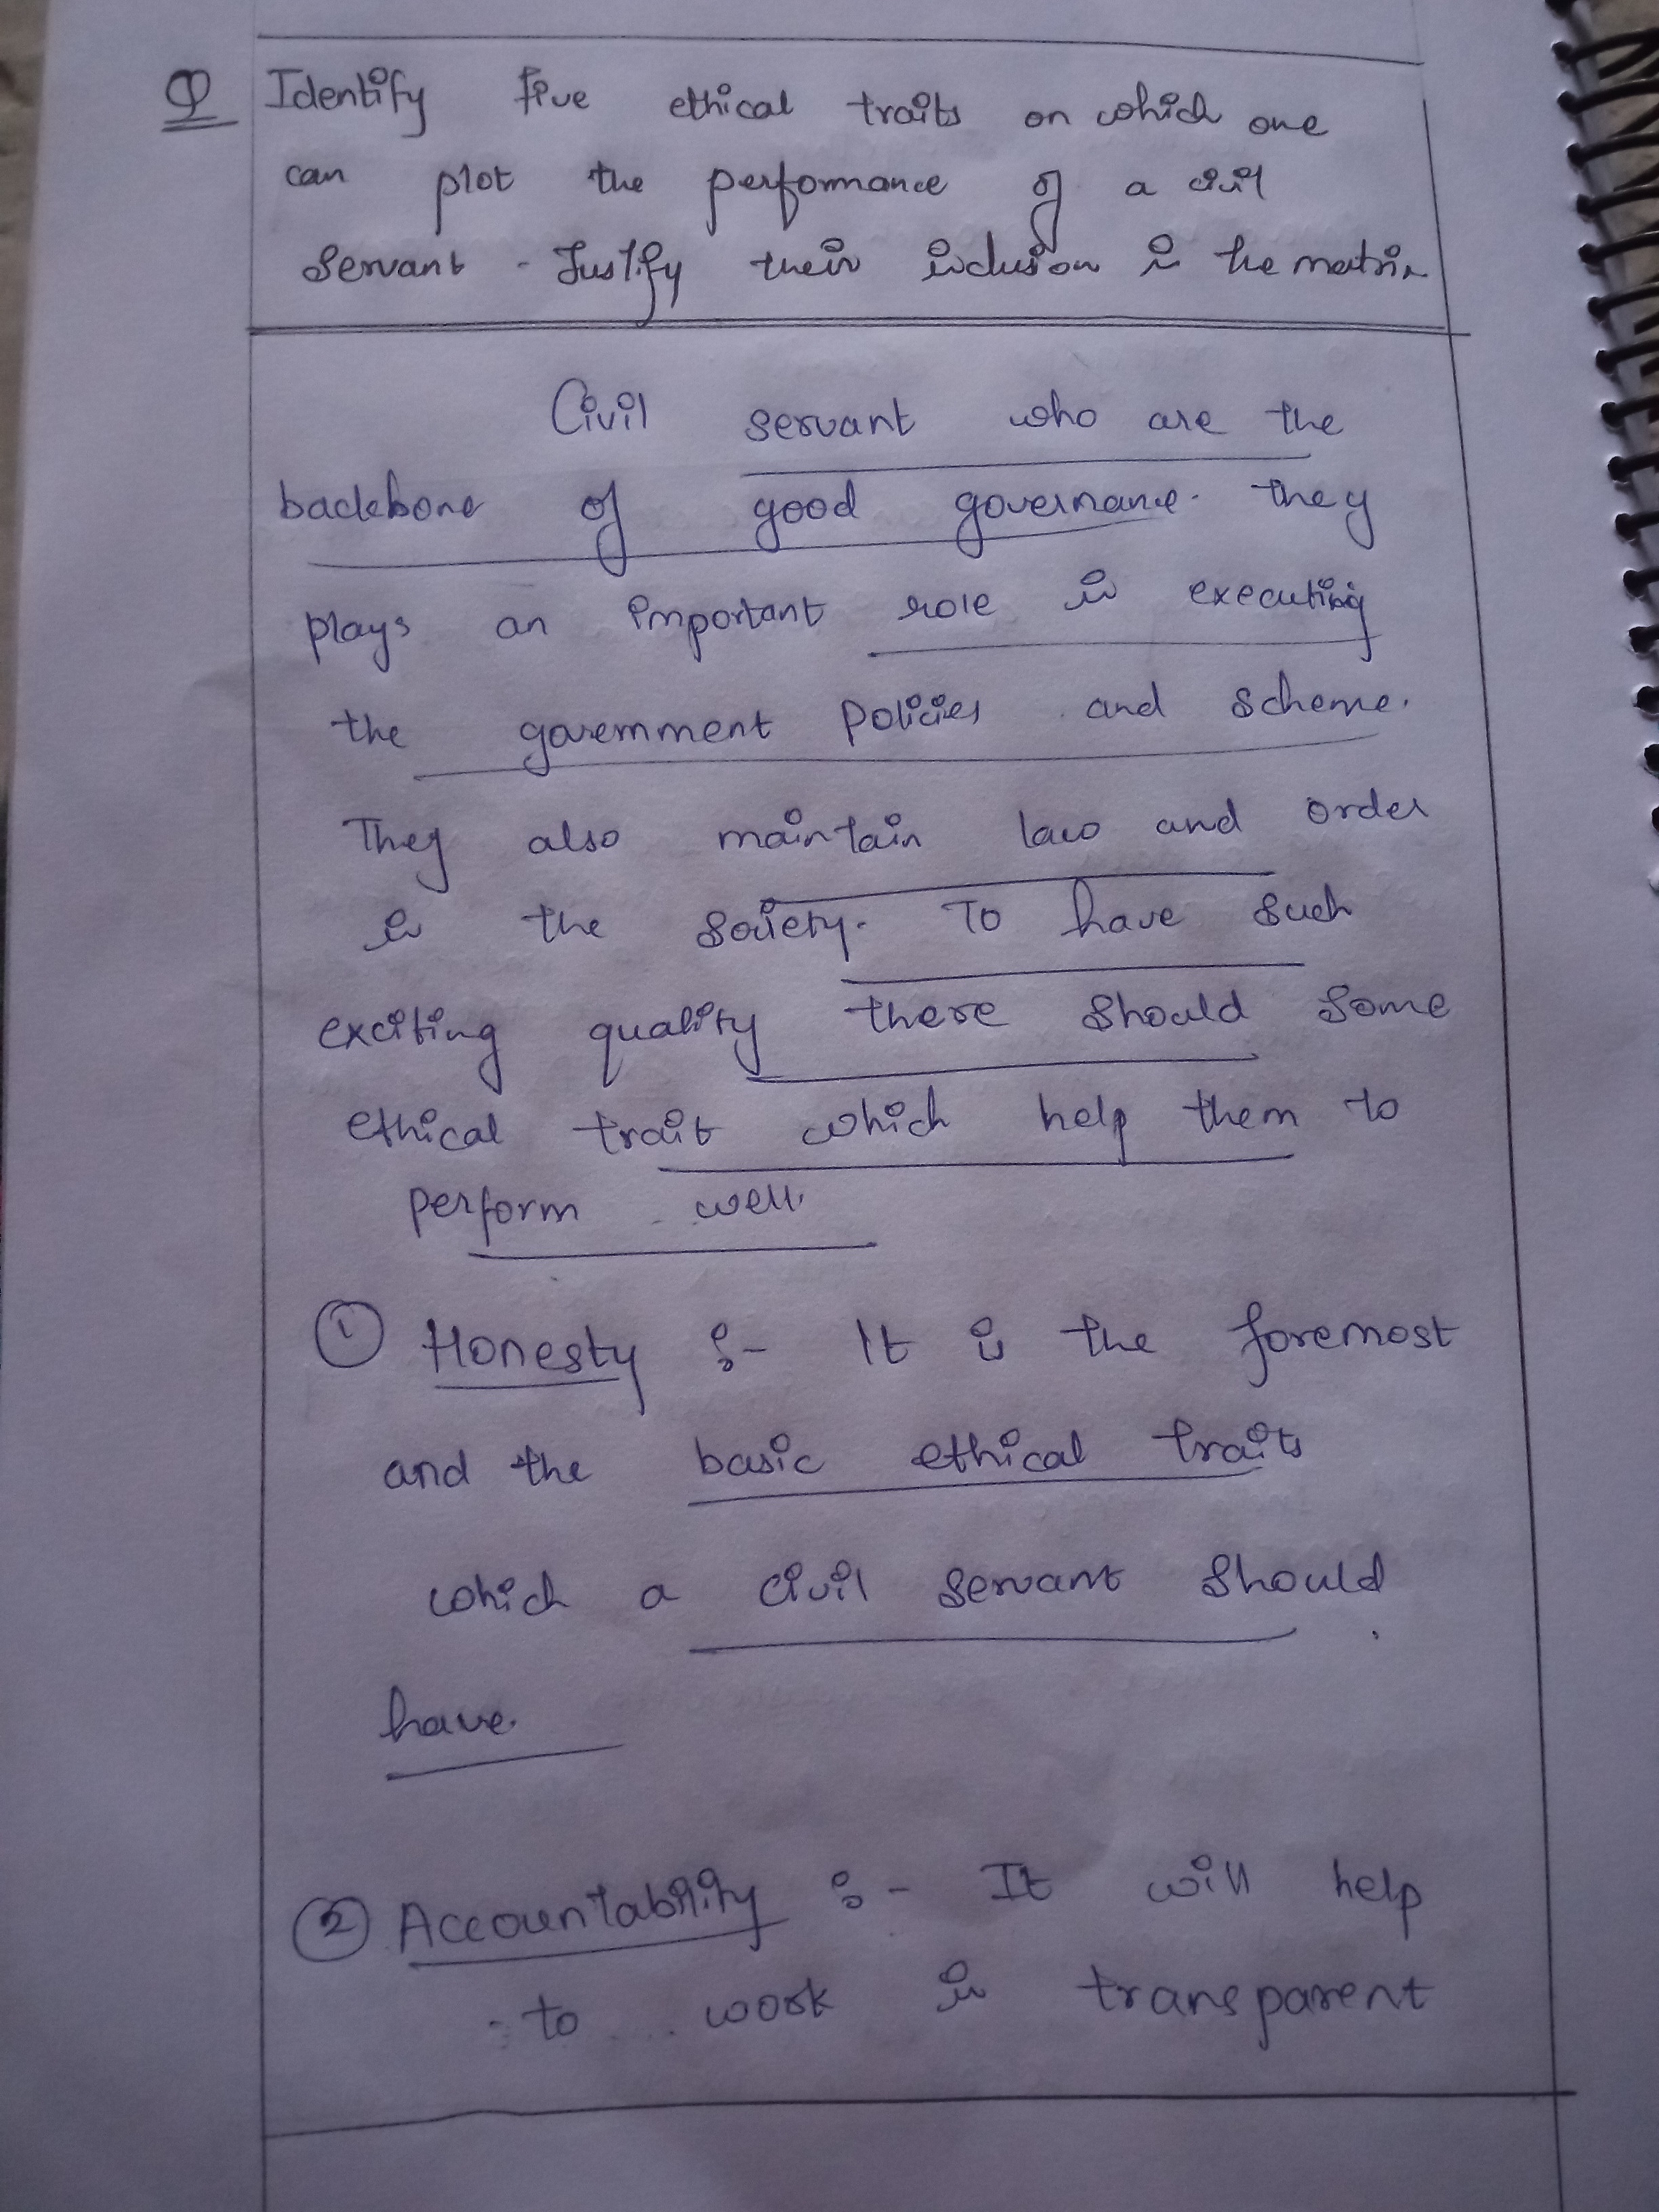 Q Identify five ethical traits on which one
can plot the performance of a civil
servant. Justify their inclusion in the matrix
Civil servant who are the
backbone of good governance. They
plays an important role in executing
the government policies and scheme.
They also maintain law and order
in the society. To have such
exciting quality there should some
ethical trait which help them to
perform well.
① Honesty :- It is the foremost
and the basic ethical traits
which a civil servant should
have.
② Accountability :- It will help
to work in transparent